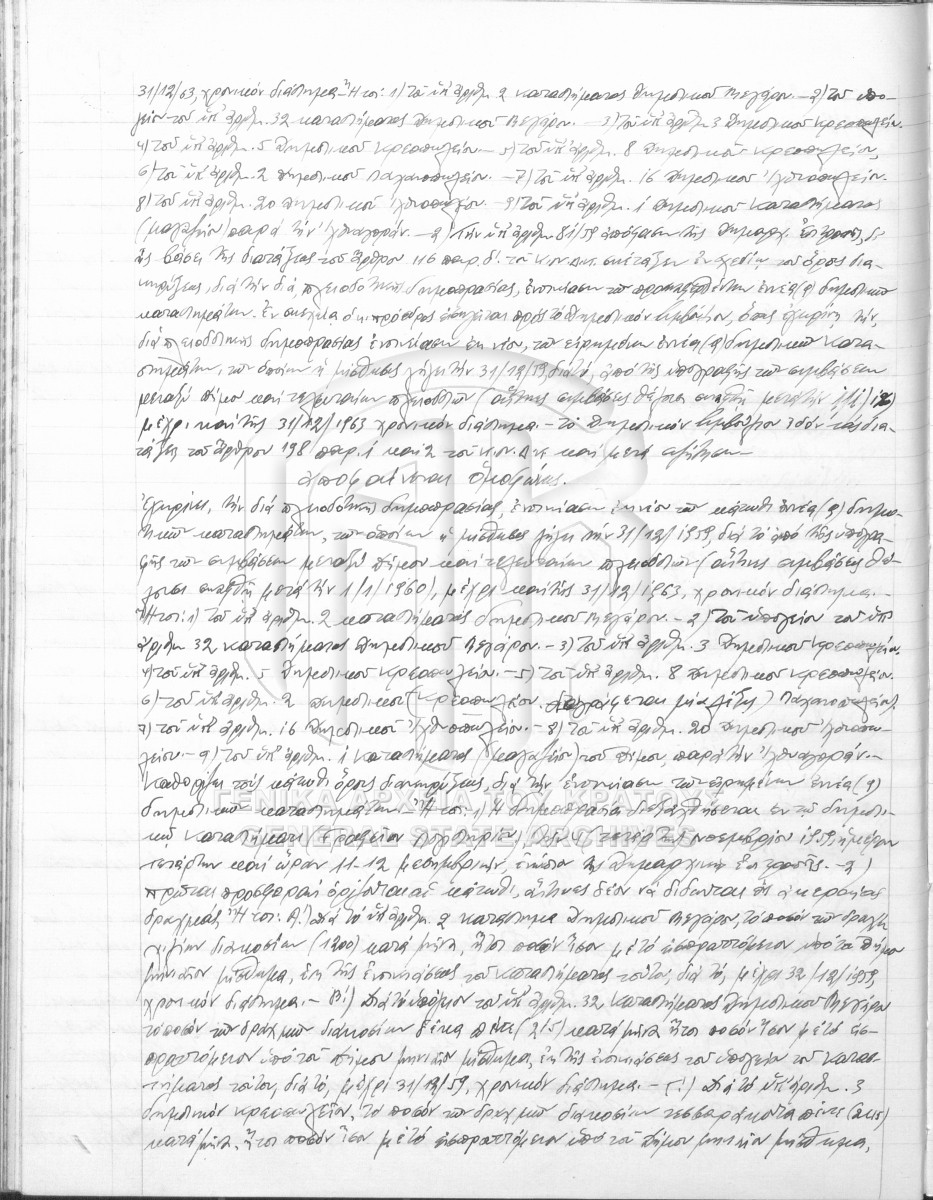 31/12/63, χρονικόν διάστημα. Ήτοι: 1) Τοῦ ὑπ' ἀριθμ. 2 καταστήματος Δημοτικοῦ Μεγάρου. — 2) Τοῦ ὑπο-
γείου τοῦ ὑπ' ἀριθμ. 32 καταστήματος Δημοτικοῦ Μεγάρου. — 3) Τοῦ ὑπ' ἀριθμ. 3 Δημοτικοῦ Κρεοπωλείου.
4) Τοῦ ὑπ' ἀριθμ. 5 Δημοτικοῦ Κρεοπωλείου. — 5) Τοῦ ὑπ' ἀριθμ. 8 Δημοτικοῦ Κρεοπωλείου,
6) Τοῦ ὑπ' ἀριθμ. 2 Δημοτικοῦ Λαχανοπωλείου. — 7) Τοῦ ὑπ' ἀριθμ. 16 Δημοτικοῦ Ἰχθυοπωλείου.
8) Τοῦ ὑπ' ἀριθμ. 20 Δημοτικοῦ Ἰχθυοπωλείου. — 9) Τοῦ ὑπ' ἀριθμ. 1 Δημοτικοῦ Καταστήματος
(μαγαζίου) παρὰ τὴν Ἰχθυαγοράν. — 2) Τὴν ὑπ' ἀριθμ. 81/59 ἀπόφασιν τῆς Δημαρχ. Ἐπιτροπῆς, δι'
ἧς βάσει τῆς διατάξεως τοῦ ἄρθρου 116 παρ. δ. τοῦ Κιν. Δικ. συνέταξεν ἐν σχεδίῳ τοὺς ὅρους δια-
κηρύξεως, διὰ τὴν διὰ πλειοδοτικῆς δημοπρασίας, ἐνοικίασιν τῶν ἐννέα (9) δημοτικῶν
καταστημάτων. Ἐν συνεχείᾳ ὁ κ. πρόεδρος εἰσηγεῖται πρὸς τὸ Δημοτικὸν Συμβούλιον, ὅπως ἐγκρίνῃ τὴν,
διὰ πλειοδοτικῆς δημοπρασίας ἐνοικίασιν ἐκ νέου, τῶν εἰρημένων ἐννέα (9) δημοτικῶν κατα-
στημάτων, τῶν ὁποίων ἡ μίσθωσις λήγει τὴν 31/12/59, διὰ τὸ, ἀπὸ τῆς ὑπογραφῆς τῶν συμβάσεων
μεταξὺ Δήμου καὶ τελευταίων πλειοδοτῶν (αἵτινες συμβάσεις θέλουσι συναφθῆ μετὰ τὴν 1/1/60)
μέχρι καὶ τῆς 31/12/1963 χρονικὸν διάστημα. — Τὸ Δημοτικὸν Συμβούλιον ἰδὸν τὰς δια-
τάξεις τοῦ ἄρθρου 198 παρ. 1 καὶ 2 τοῦ Κιν. Δικ. καὶ μετὰ συζήτησιν
ἀποφαίνεται ὁμοφώνως.
Ἐγκρίνει, τὴν διὰ πλειοδοτικῆς δημοπρασίας, ἐνοικίασιν ἐκ νέου τῶν κάτωθι ἐννέα (9) δημο-
τικῶν καταστημάτων, τῶν ὁποίων ἡ μίσθωσις λήγει τὴν 31/12/1959, διὰ τὸ ἀπὸ τῆς ὑπογρα-
φῆς τῶν συμβάσεων μεταξὺ Δήμου καὶ τελευταίων πλειοδοτῶν (αἵτινες συμβάσεις θέ-
λουσι συναφθῆ μετὰ τὴν 1/1/1960), μέχρι καὶ τῆς 31/12/1963, χρονικὸν διάστημα. —
Ήτοι: 1) Τοῦ ὑπ' ἀριθμ. 2 καταστήματος δημοτικοῦ Μεγάρου. — 2) Τοῦ ὑπογείου τοῦ ὑπ'
ἀριθμ. 32 καταστήματος Δημοτικοῦ Μεγάρου. — 3) Τοῦ ὑπ' ἀριθμ. 3 Δημοτικοῦ Κρεοπωλείου.
4) Τοῦ ὑπ' ἀριθμ. 5 Δημοτικοῦ Κρεοπωλείου. — 5) Τοῦ ὑπ' ἀριθμ. 8 Δημοτικοῦ Κρεοπωλείου.
6) Τοῦ ὑπ' ἀριθμ. 2 Δημοτικοῦ (Κρεοπωλείου. διαγράφεται μία λέξις) Λαχανοπωλείου
7) Τοῦ ὑπ' ἀριθμ. 16 Δημοτικοῦ Ἰχθυοπωλείου. — 8) Τοῦ ὑπ' ἀριθμ. 20 Δημοτικοῦ Ἰχθυοπω-
λείου — 9) Τοῦ ὑπ' ἀριθμ. 1 Καταστήματος (μαγαζίου) τοῦ Δήμου, παρὰ τὴν Ἰχθυαγοράν. —
Καθορίζει τοὺς κάτωθι ὅρους διακηρύξεως, διὰ τὴν ἐνοικίασιν τῶν εἰρημένων ἐννέα (9)
δημοτικῶν καταστημάτων. — Ήτοι: 1) Ἡ δημοπρασία διεξαχθήσεται ἐν τῷ δημοτι-
κῷ Καταστήματι Γραφεῖον Νοεμβρίου 1959, ἡμέραν
τετάρτην καὶ ὥραν 11-12 μεσημβρινήν, ἐνώπιον τῆς Δημαρχιακῆς Ἐπιτροπῆς. — 2)
πρῶται προσφοραὶ ὁρίζονται αἱ κάτωθι, αἵτινες δέον νὰ δίδωνται εἰς ἀκεραίας
δραχμάς, Ήτοι: Α') Διὰ τὸ ὑπ' ἀριθμ. 2 κατάστημα Δημοτικοῦ Μεγάρου, τὸ ποσὸν τῶν δραχμῶν
χιλίων διακοσίων (1200) κατὰ μῆνα, ἤτοι ποσὸν ἴσον μὲ τὸ εἰσπραττόμενον ὑπὸ τοῦ Δήμου
μηνιαῖον μίσθωμα, ἐκ τῆς ἐνοικιάσεως τοῦ καταστήματος τούτου, διὰ τὸ, μέχρι 32/12/1959,
χρονικὸν διάστημα. — Β') Διὰ τὸ ὑπόγειον τοῦ ὑπ' ἀριθμ. 32, Καταστήματος Δημοτικοῦ Μεγάρου
τὸ ποσὸν τῶν δραχμῶν διακοσίων δέκα πέντε (215) κατὰ μῆνα ἤτοι ποσὸν ἴσον μὲ τὸ εἰσ-
πραττόμενον ὑπὸ τοῦ Δήμου μηνιαῖον μίσθωμα, ἐκ τῆς ἐνοικιάσεως τοῦ ὑπογείου τοῦ Κατασ-
τήματος τούτου, διὰ τὸ, μέχρι 31/12/59, χρονικὸν διάστημα. — Γ') Διὰ τὸ ὑπ' ἀριθμ. 3
δημοτικὸν κρεοπωλεῖον, τὸ ποσὸν τῶν δραχμῶν διακοσίων τεσσαράκοντα πέντε (245)
κατὰ μῆνα, ἤτοι ποσὸν ἴσον μὲ τὸ εἰσπραττόμενον ὑπὸ τοῦ Δήμου μηνιαῖον μίσθωμα,
ΓΕΝΙΚΑ ΑΡΧΕΙΑ ΤΟΥ ΚΡΑΤΟΥΣ
GENERAL STATE ARCHIVES